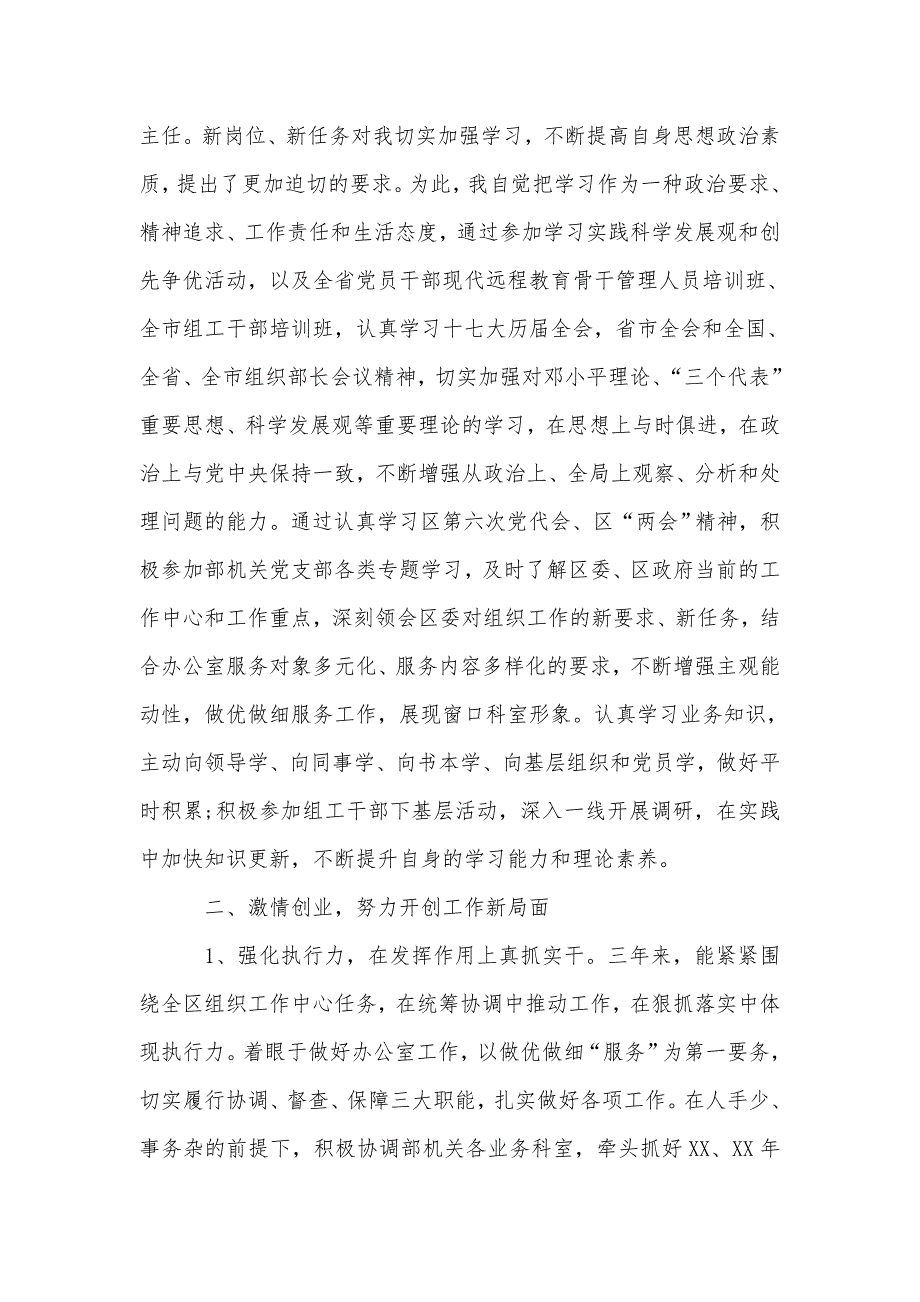 主任。新岗位、新任务对我切实加强学习，不断提高自身思想政治素
质，提出了更加迫切的要求。为此，我自觉把学习作为一种政治要求、
精神追求、工作责任和生活态度，通过参加学习实践科学发展观和创
先争优活动，以及全省党员干部现代远程教育骨干管理人员培训班、
全市组工干部培训班，认真学习十七大历届全会，省市全会和全国、
全省、全市组织部长会议精神，切实加强对邓小平理论、“三个代表”
重要思想、科学发展观等重要理论的学习，在思想上与时俱进，在政
治上与党中央保持一致，不断增强从政治上、全局上观察、分析和处
理问题的能力。通过认真学习区第六次党代会、区“两会”精神，积
极参加部机关党支部各类专题学习，及时了解区委、区政府当前的工
作中心和工作重点，深刻领会区委对组织工作的新要求、新任务，结
合办公室服务对象多元化、服务内容多样化的要求，不断增强主观能
动性，做优做细服务工作，展现窗口科室形象。认真学习业务知识，
主动向领导学、向同事学、向书本学、向基层组织和党员学，做好平
时积累;积极参加组工干部下基层活动，深入一线开展调研，在实践
中加快知识更新，不断提升自身的学习能力和理论素养。
二、激情创业，努力开创工作新局面
1、强化执行力，在发挥作用上真抓实干。三年来，能紧紧围
绕全区组织工作中心任务，在统筹协调中推动工作，在狠抓落实中体
现执行力。着眼于做好办公室工作，以做优做细“服务”为第一要务，
切实履行协调、督查、保障三大职能，扎实做好各项工作。在人手少、
事务杂的前提下，积极协调部机关各业务科室，牵头抓好 XX、XX 年